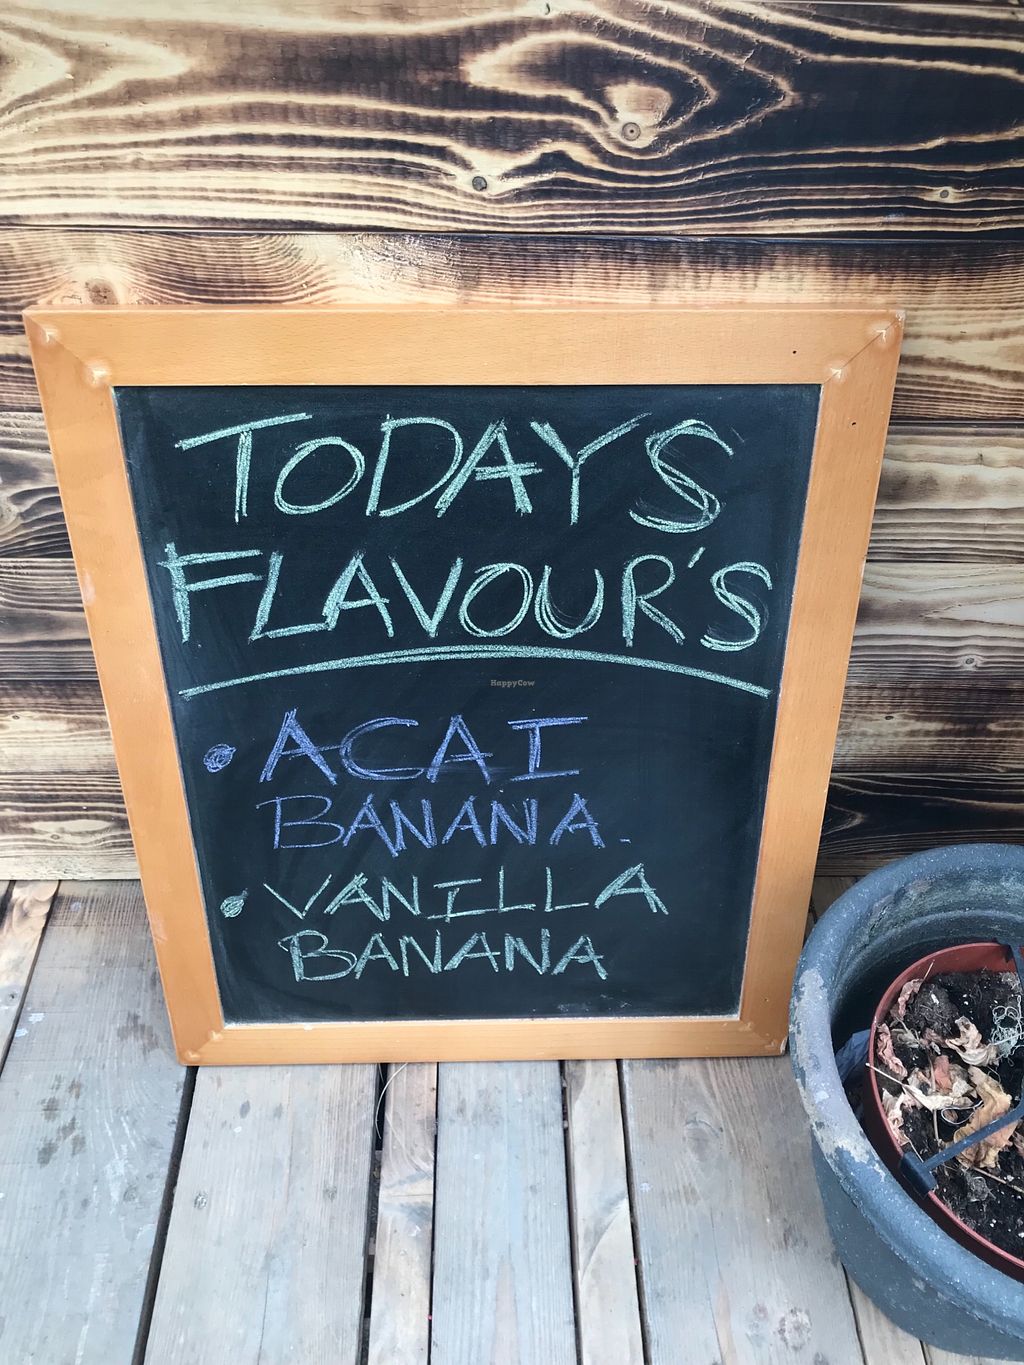 TODAYS
FLAVOUR'S
HappyCow
• ACAI
BANANA.
• VANILLA
BANANA